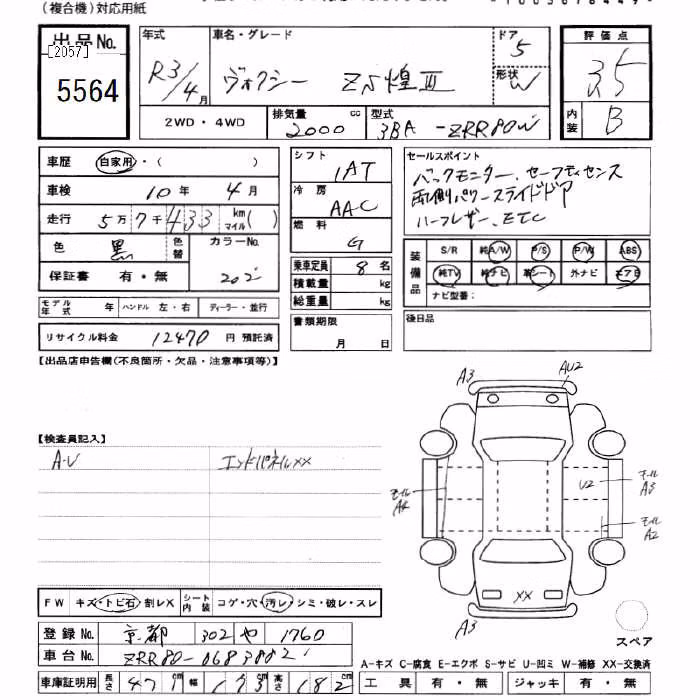 (複合機)対応用紙
出品No. 年式 車名・グレード ドア 5 評価点
[2057]
5564 R3/4月 ヴォクシー ZS煌Ⅲ 形状 W 3.5
2WD・4WD 排気量 2000 cc 型式 3BA-ZRR80W 内装 B
車歴 自家用・( ) シフト IAT セールスポイント
車検 10年 4月 冷房 AAC バックモニター、セーフティセンス
走行 5万7千433 km マイル( ) 両側パワースライドドア
燃料 G ハーフレザー、ETC
色 黒 色替 カラーNo. 202
保証書 有・無 乗車定員 8名
装備品 S/R 純A/W P/S P/W ABS
純TV 純ナビ 革シート 外ナビ エアB
ナビ型番:
積載量 kg
総重量 kg
モデル年式 年 ハンドル 左・右 ディーラー・並行
書類期限 月 日 後日品
リサイクル料金 12470円 預託済
【出品店申告欄(不良箇所・欠品・注意事項等)】
A3 AU2
【検査員記入】
A-U エンドパネルXX
モール A4 U2 モール A3
モール A2
XX
A3
FW キズ・トビ石・割レX シート内装 コゲ・穴・汚レ・シミ・破レ・スレ
登録No. 京都 302 や 1760
スペア
車台No. ZRR80-0683882
A-キズ C-腐食 E-エクボ S-サビ U-凹ミ W-補修 XX-交換済
車庫証明用 長さ 471cm 幅 173cm 高さ 182cm 工具 有・無 ジャッキ 有・無